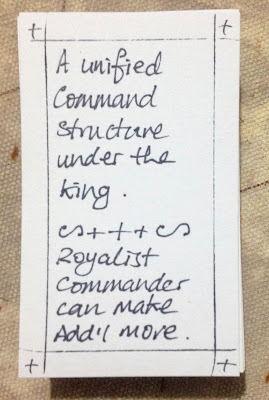 A unified
Command
Structure
under the
King.
Royalist
Commander
can make
Add'l more.